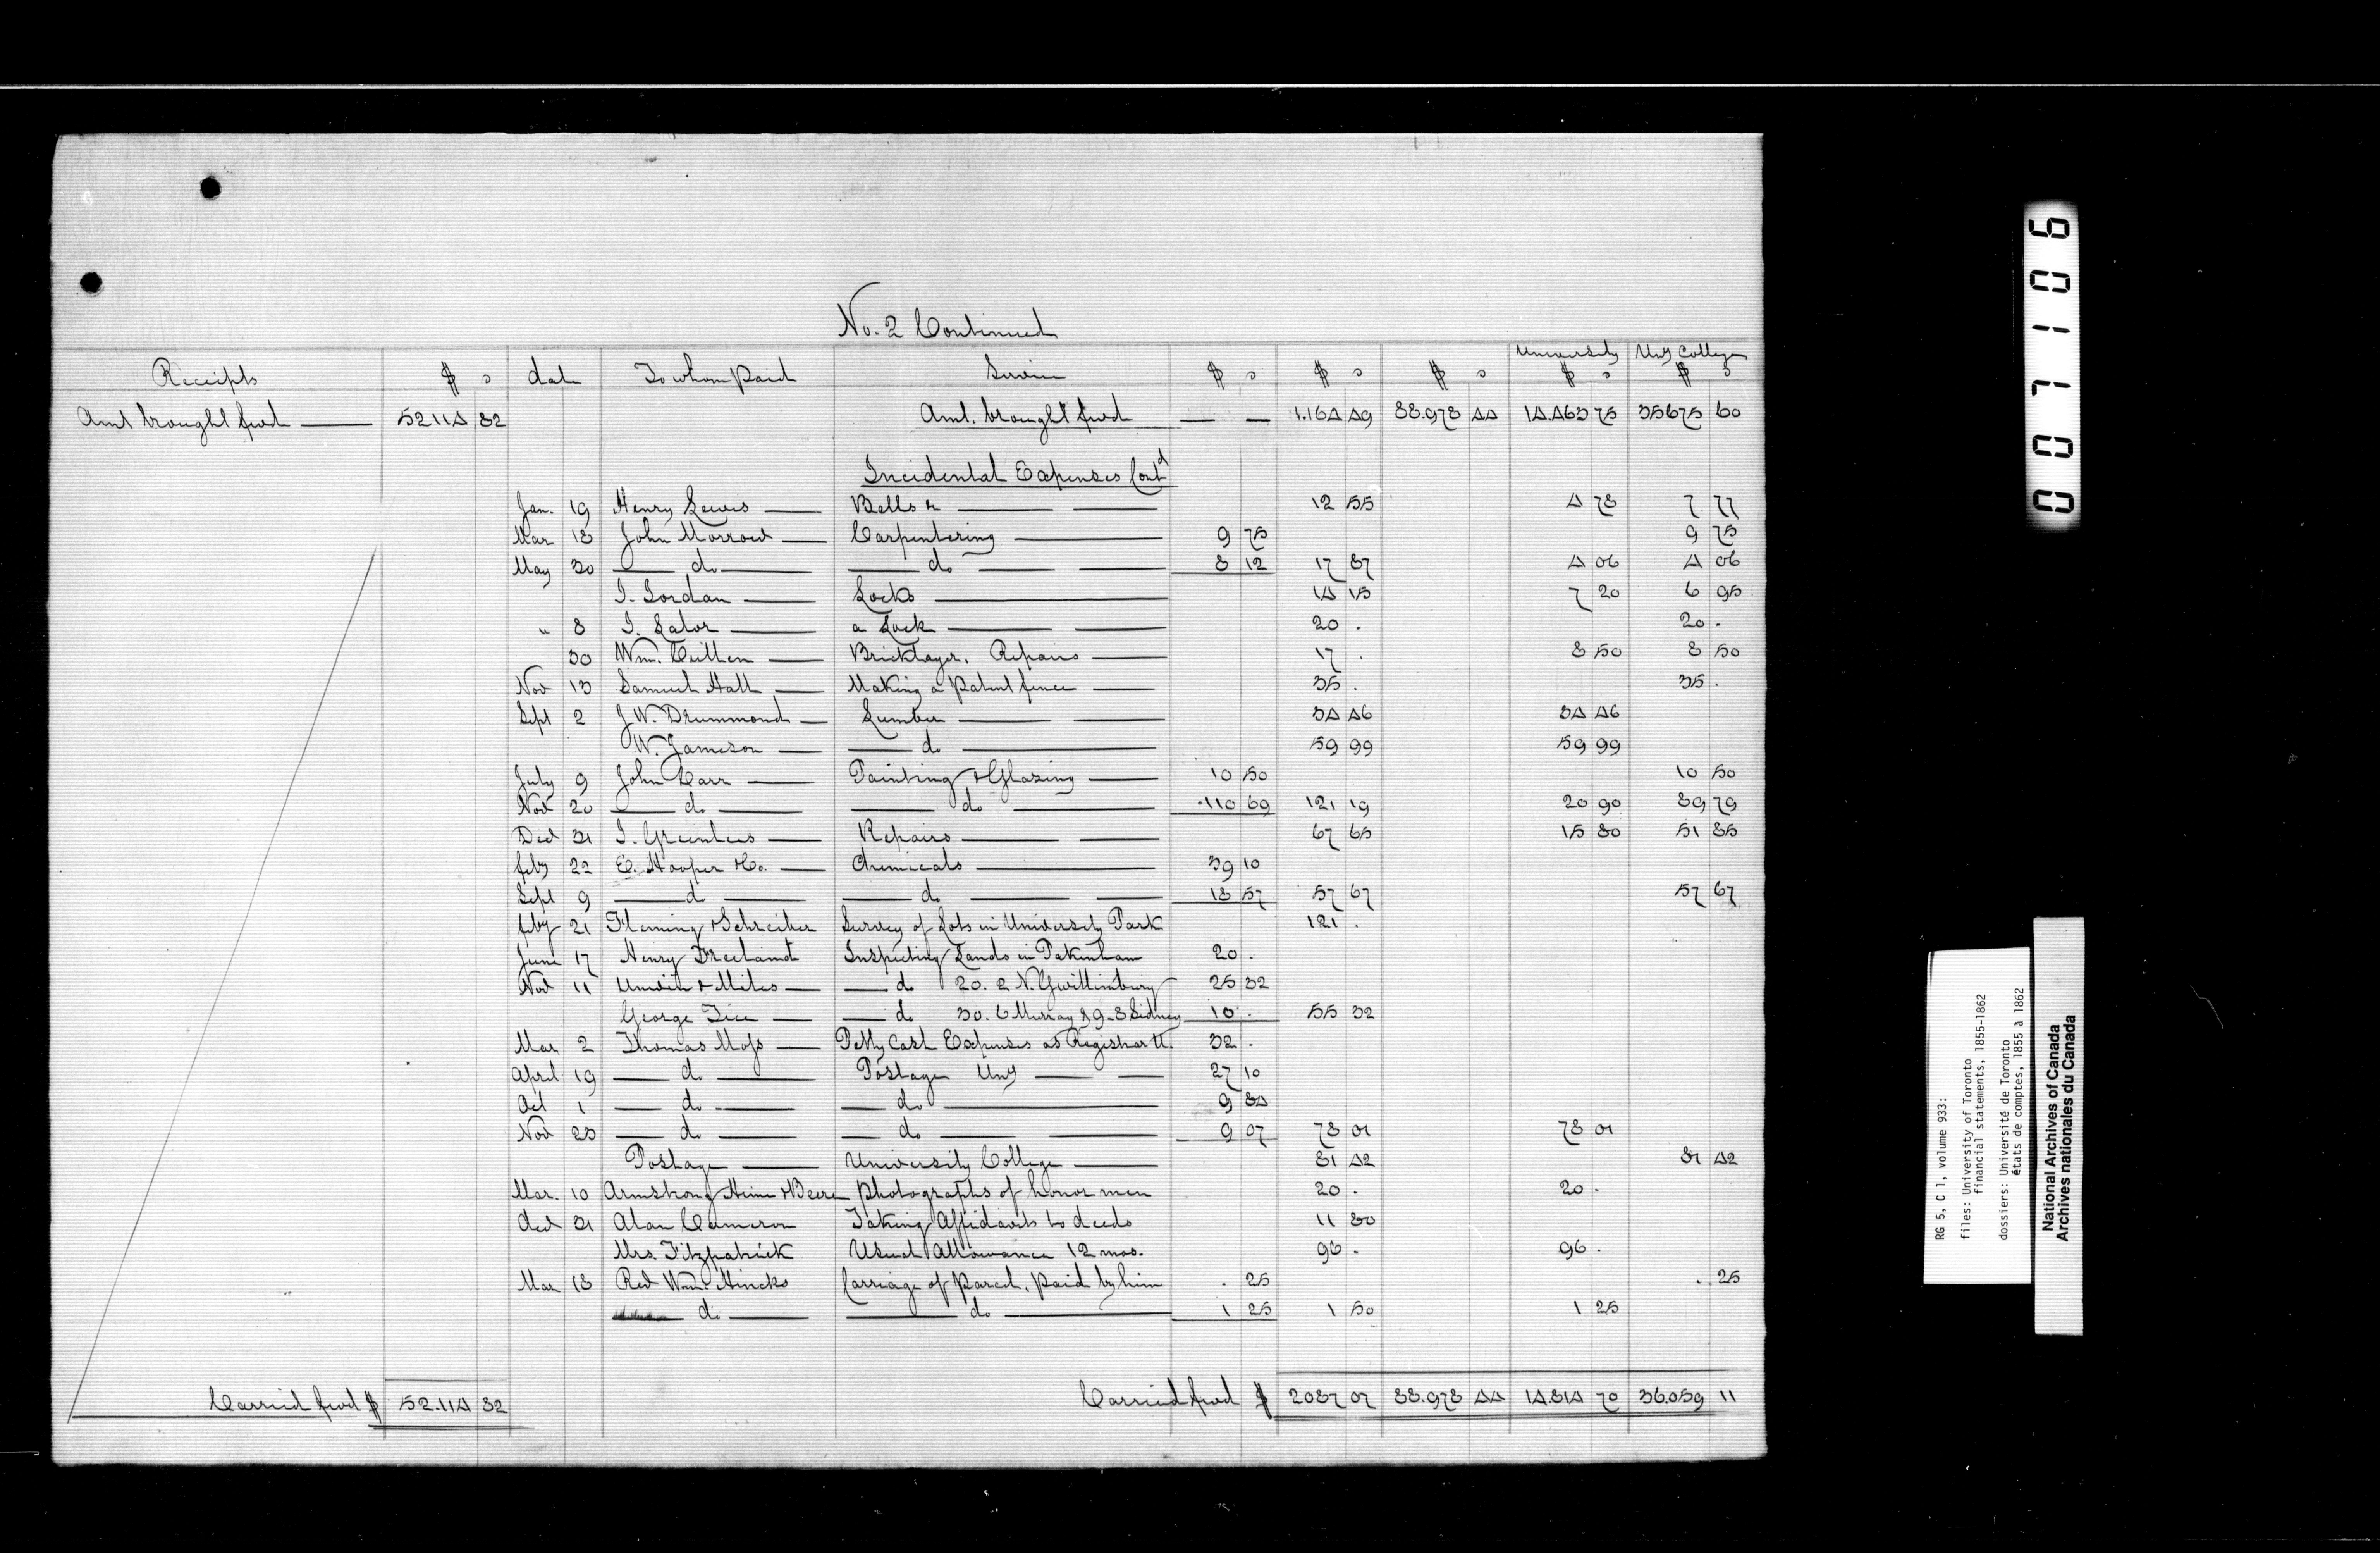 No. 2 Continued
Receipts $ c date To whom paid Service $ c $ c $ c University $ c Uny College $ c
Amt brought fwd 52114 82 Amt. brought fwd — — 1.164 49 88.978 44 14.463 75 35675 60
Incidental Expenses Contd
Jan. 19 Henry Lewis Bells &c 12 55 4 78 7 77
Mar 18 John Morrow Carpentering 9 75 9 75
May 30 do do 8 12 17 87 4 06 4 06
I. Jordan Locks 14 15 7 20 6 95
" 8 I. Lalor a Lock 20 . 20 .
30 Wm. Cullen Bricklayer. Repairs 17 . 8 50 8 50
Nov 13 Samuel Hall Making a patent fence 35 . 35 .
Sept 2 J W. Drummond Lumber 34 46 34 46
W. Jameson do 59 99 59 99
July 9 John Carr Painting & Glazing 10 50 10 50
Nov 20 do do 110 69 121 19 20 90 89 79
Dec 31 I. Greenlees Repairs 67 65 15 80 51 85
feby 22 E. Hooper & Co. Chemicals 39 10
Sept 9 do do 18 57 57 67 57 67
feby 21 Fleming & Schreiber Survey of Lots in University Park 121 .
June 17 Henry Freeland Inspecting Lands in Pakenham 20 .
Nov 11 Unwin & Miles do 20. 2 N. Gwillimbury 25 32
George Tice do 30. 6 Murray & 9-8 Sidney 10 . 55 32
Mar 2 Thomas Moss Petty Cash Expenses as Registrar U. 32 .
April 19 do Postage Uny 27 10
Oct 1 do do 9 84
Nov 23 do do 9 07 78 01 78 01
Postage University College 81 42 81 42
Mar. 10 Armstrong Hime & Beere photographs of honor men 20 . 20 .
Dec 31 Alan Cameron Taking Affidavits to deeds 11 80
Mrs. Fitzpatrick Usual Allowance 12 mos. 96 . 96 .
Mar 18 Rev Wm. Hincks Carriage of parcel, paid by him . 25 . 25
do do 1 25 1 50 1 25
Carried fwd $ 52.114 82 Carried fwd $ 2087 07 88.978 44 14.814 70 36.059 11
007106
RG 5, C 1, volume 933:
files: University of Toronto
financial statements, 1855-1862
dossiers: Université de Toronto
états de comptes, 1855 à 1862
National Archives of Canada
Archives nationales du Canada